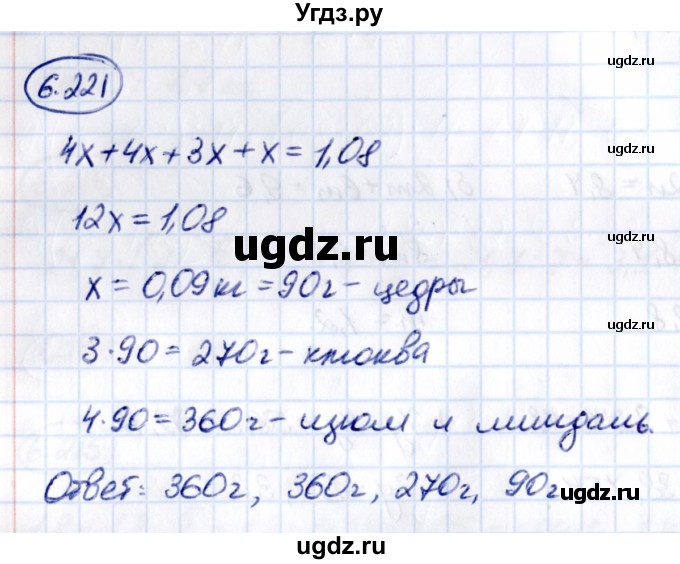 Угдз.ру
ugdz.ru
6.221
4x+4x+3x+x=1,08
12x=1,08
ugdz.ru
ugdz.ru
x=0,09кг=90г-цедры
ugdz.ru
3·90=270г-клюква
4·90=360г-изюм и миндаль.
ugdz.ru
Ответ: 360г, 360г, 270г, 90г
ugdz.ru
ugdz.ru